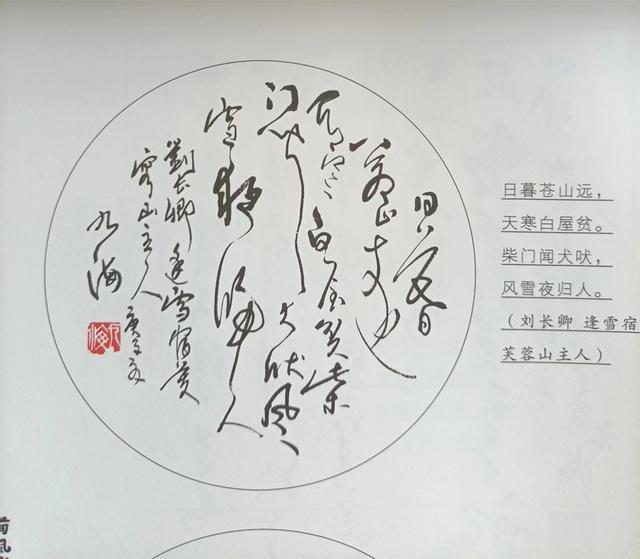 日暮
苍山远
天寒白屋贫柴
门闻犬吠风
雪夜归人
劉长卿 逢雪宿芙
蓉山主人
九海
日暮苍山远，
天寒白屋贫。
柴门闻犬吠，
风雪夜归人。
（刘长卿 逢雪宿
芙蓉山主人）